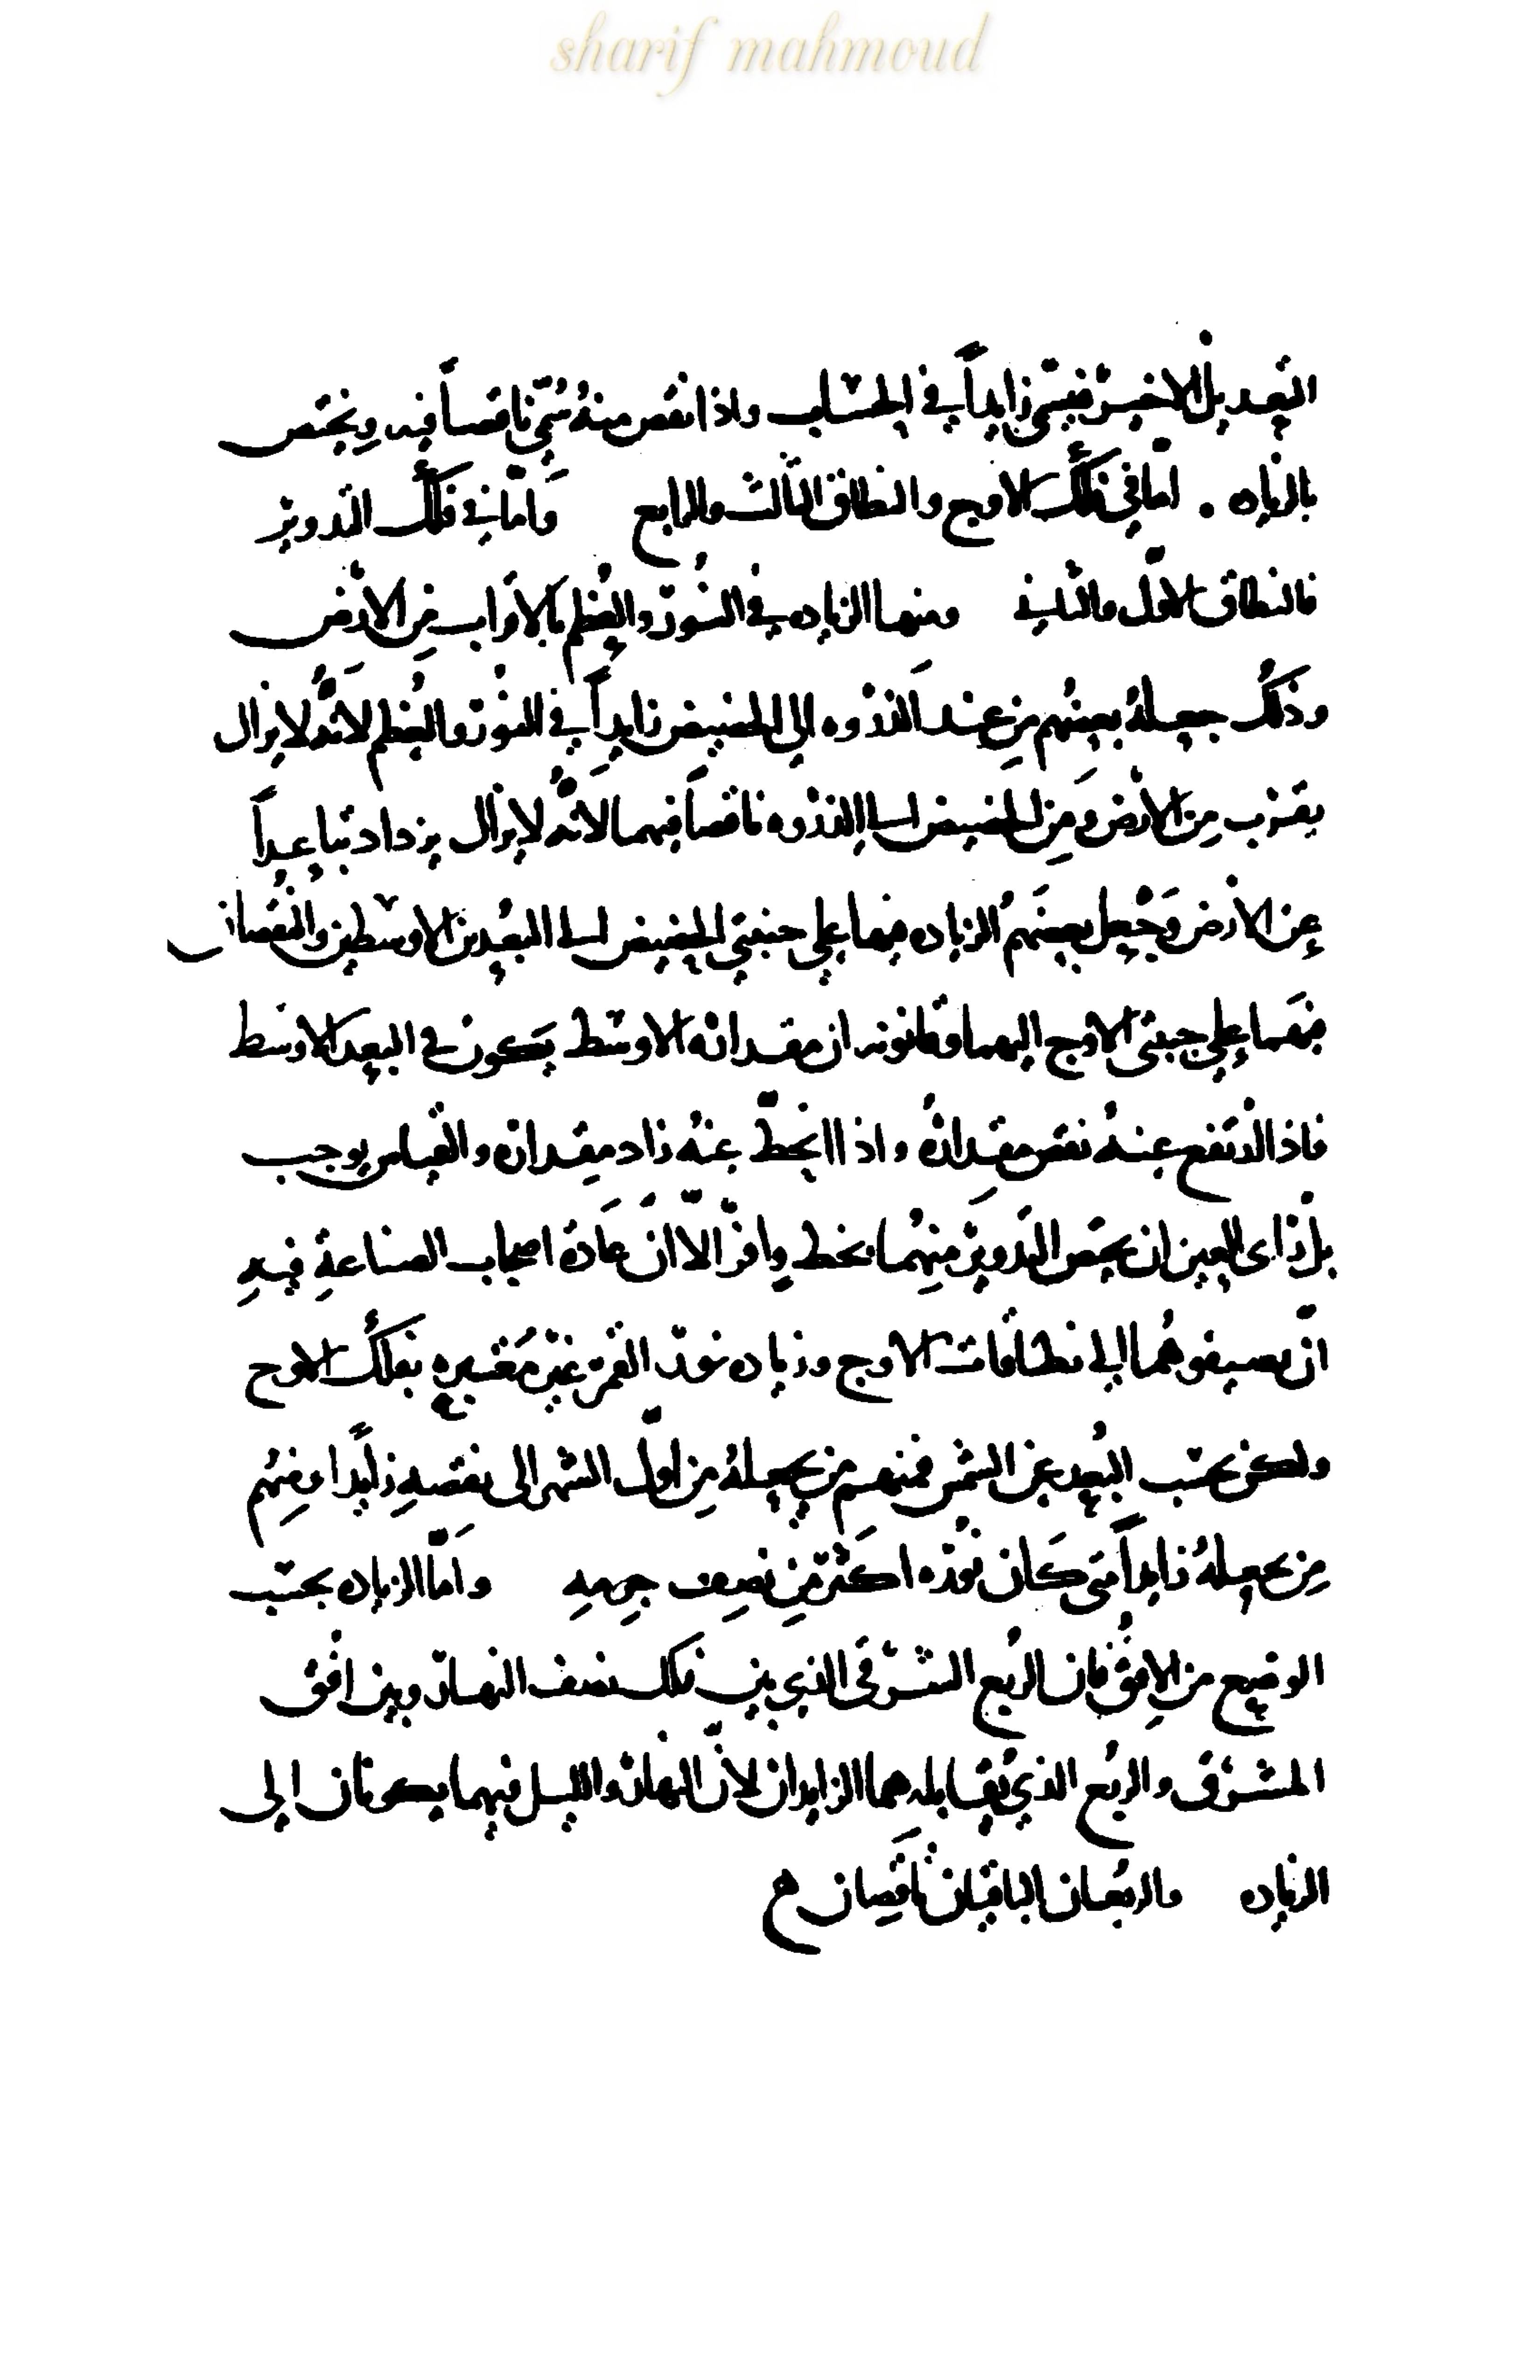 sharif mahmoud
التعديل الاخير فيسمى زايداً في الحساب واذا نقص منهُ سُمّي ناقصاً فيه ويختص
بالزياده . امّا في فلك الاوج والنطاق الثالث والرابع وامّا في فلك التدوير
فالنطاق الاوّل والثاني ومنها الزياده في النُور والعُظم بالاقتراب مِن الارض
وذلك جعلهُ بعضُهم مِن عند الذروه الى الحضيض زايداً في النُور والعُظم لانّهُ لا يزال
يقترب مِن الارض ومِن الحضيض الى الذروه ناقصاً فيهما لانّهُ لا يزال يزداد تباعداً
عن الارض وجُعل بعضهمُ الزياده فيهما على جنبتي الحضيض الى البُعدين الاوسطين والنُقصان
فيهما على جنبتي الاوج اليهما وقانونه ان مقداره الاوسط يكون في البعد الاوسط
فاذا ارتفع عنهُ نقص مقدارهُ واذا انحطّ عنهُ زاد مِقداره والقياس يوجب
بل رأى العين ان يختص التدوير منهُما بخط وافر الّا انّ عادة اصحاب الصناعةِ فيهِ
انْ يضيفوهُما الى نطاقات الاوج وزياده نور القمر غير مُقتسيره بفلك الاوج
ولكن بحسب البُعد عن الشمس فمنهم من يجعلهُ مِن اوّل الشهر الى نصفهِ زايداً ومِنهُم
مِن يجعلهُ زايداً متى كان نُوره اكثر مِن نصِف جِرمهِ وامّا الزياده بحسب
الوضع من الافُق فان الرُبع الشرقى الذي بين فلك نصف النهار وبين افُق
المشرق والربُع الذي يُقابله هما الزايدان لانّ النهار والليل فيهما يكونان الى
الزياده والربعان الباقيان ناقِصان